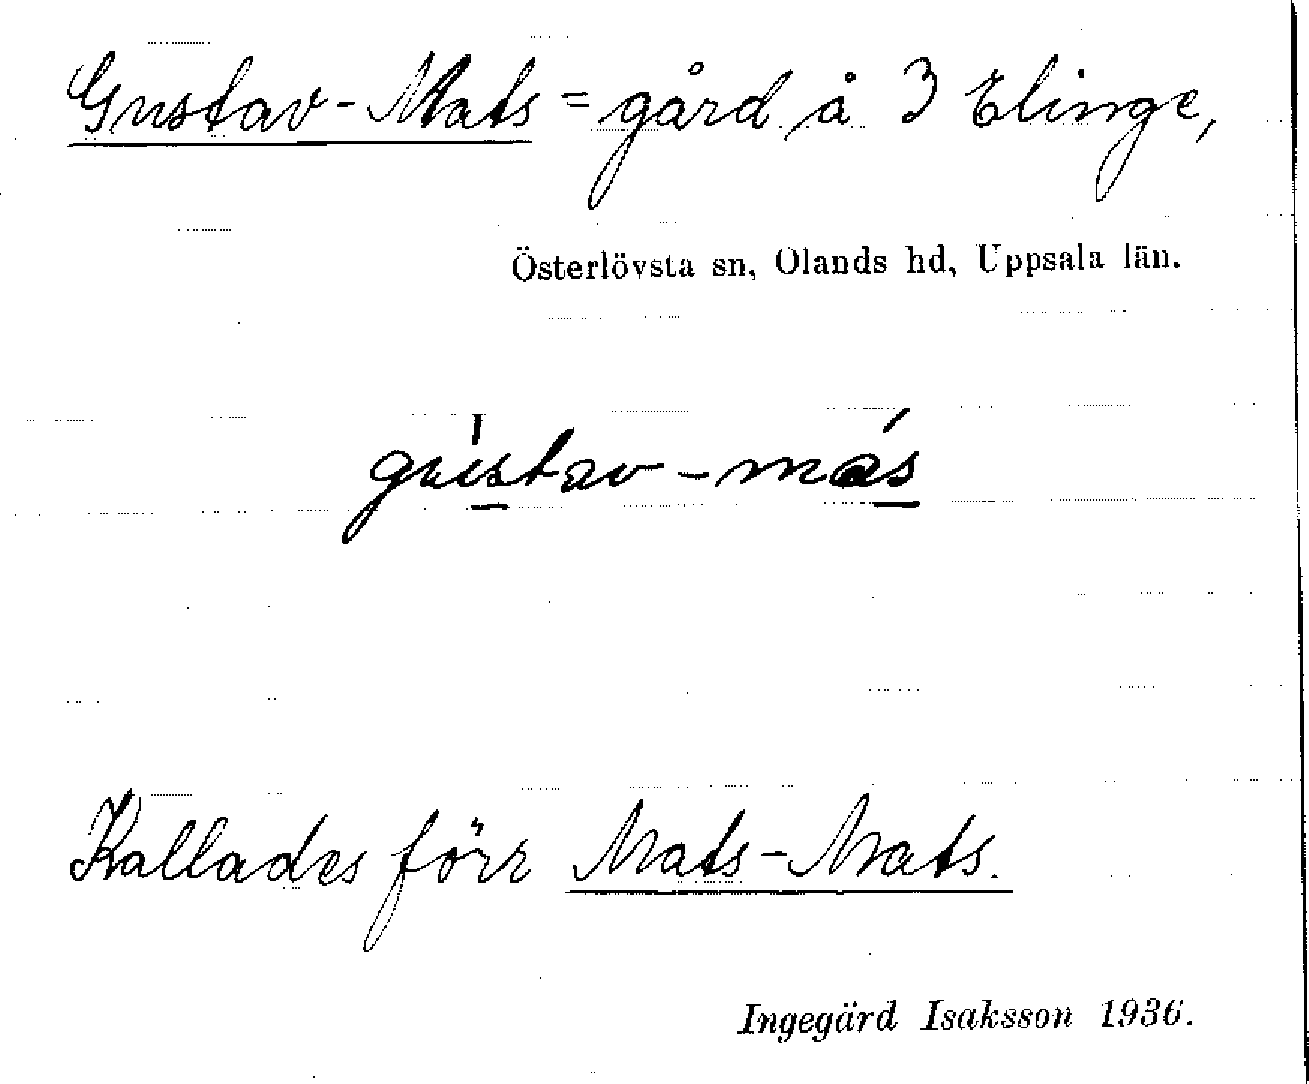 Gustav-Mats = gård å 3 Elinge,
Österlövsta sn, Olands hd, Uppsala län.
gústav-màs
Kallades förr Mats-Mats.
Ingegärd Isaksson 1936.